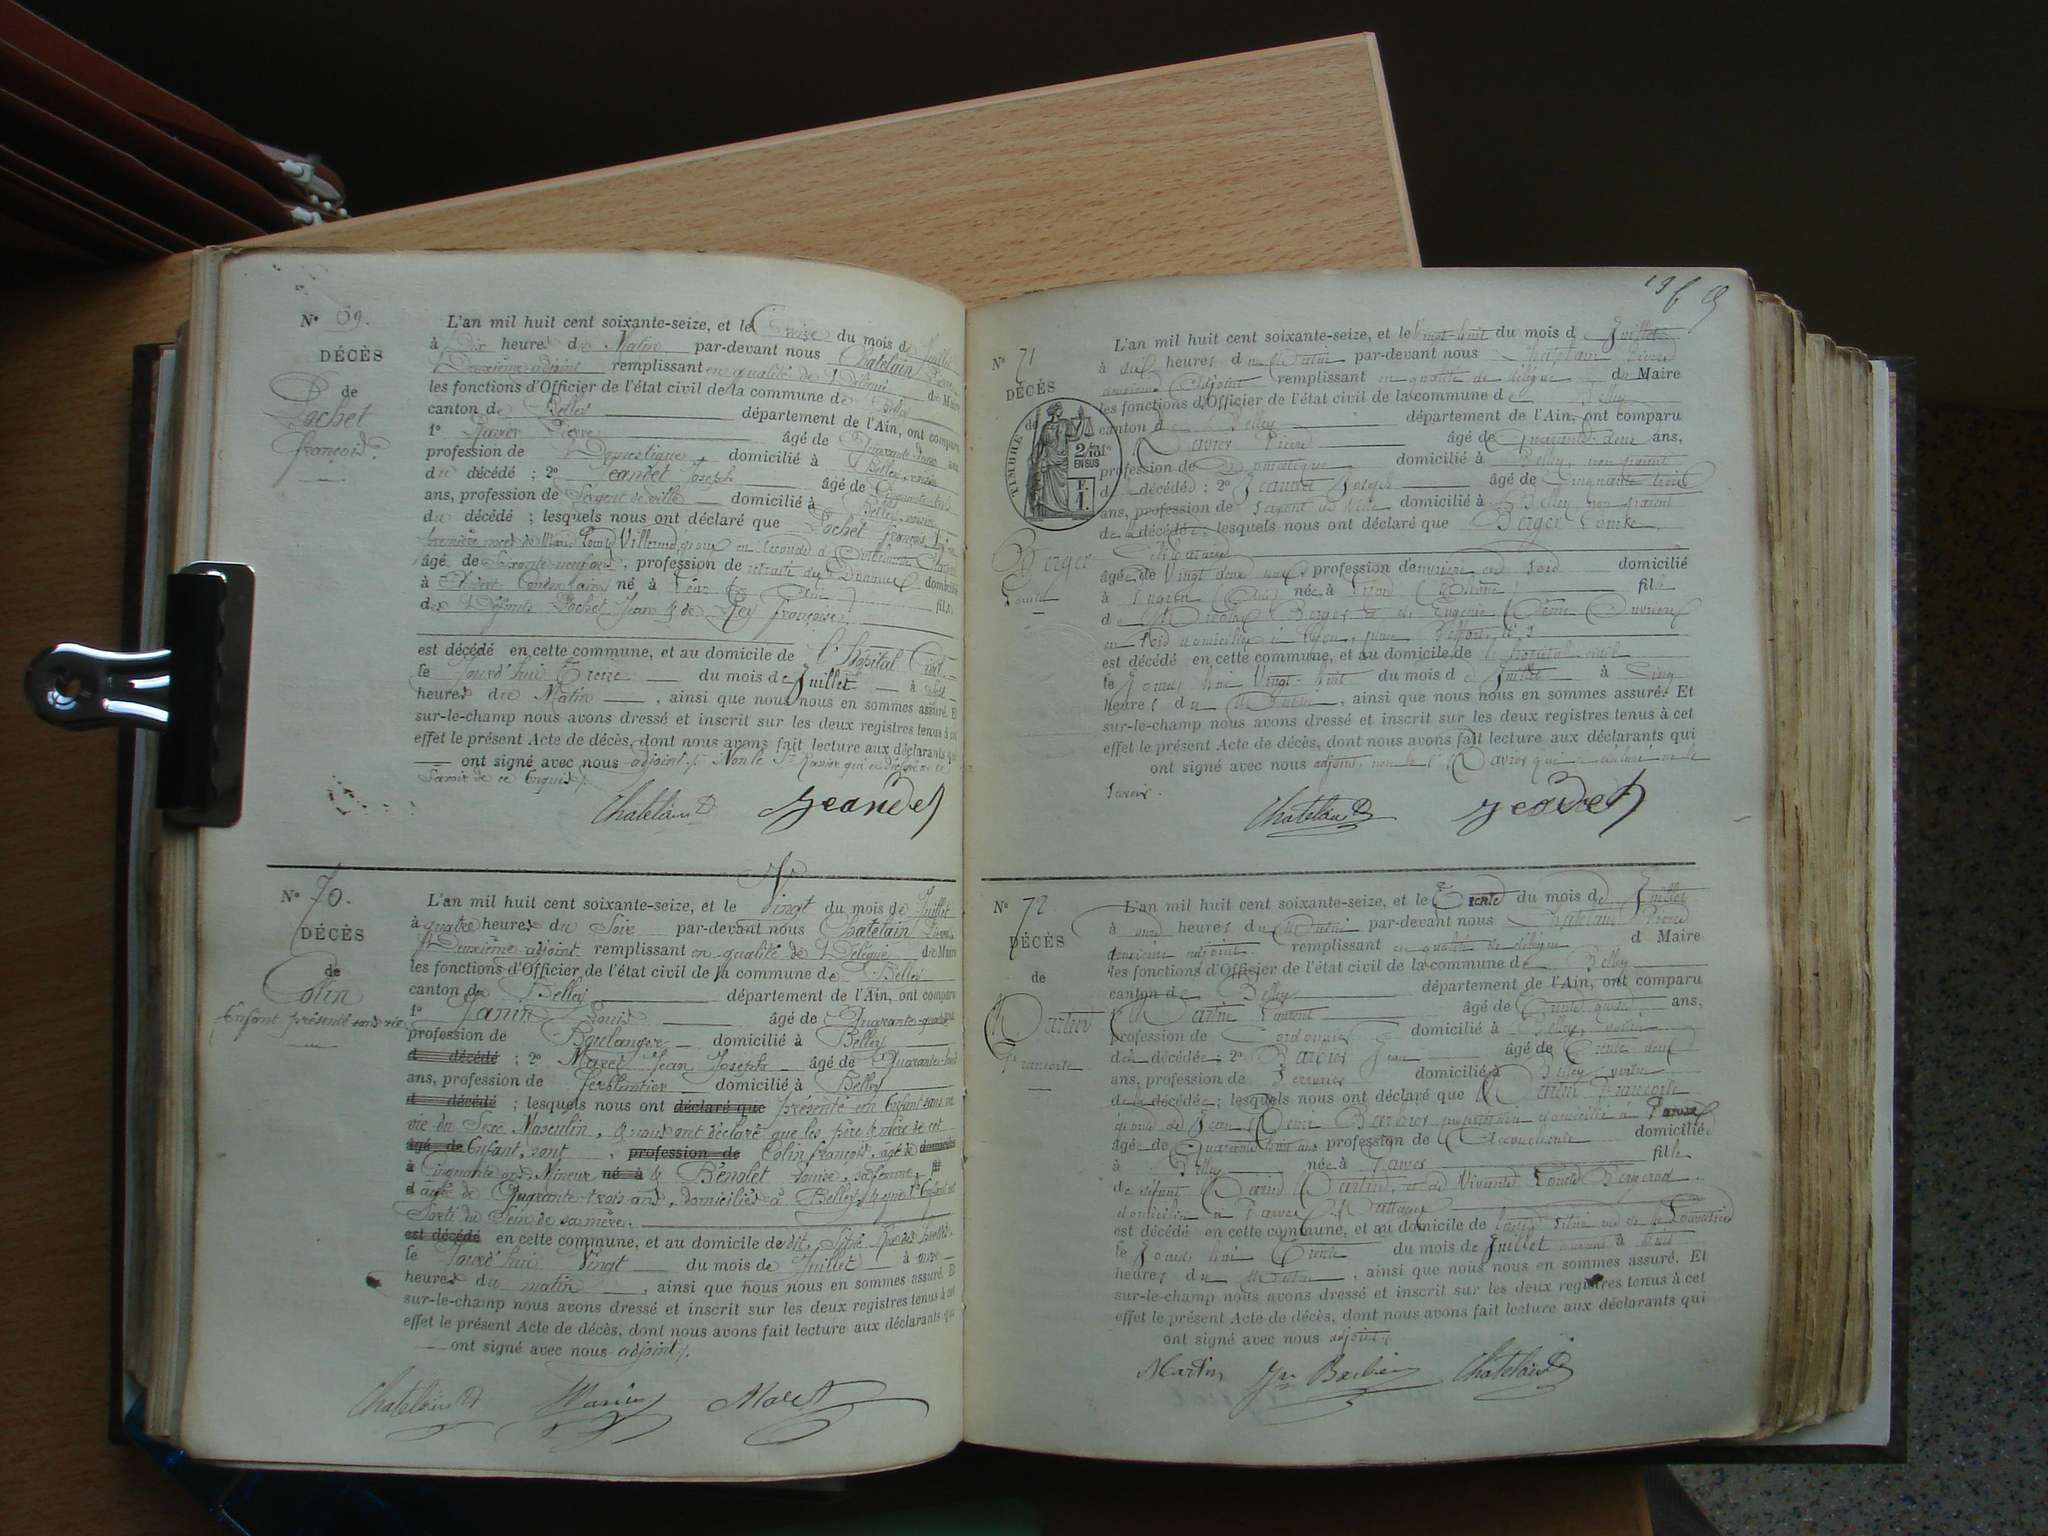 N° 69.
DÉCÈS
de
Pochet
François
L'an mil huit cent soixante-seize, et le Treize du mois de Juillet
à Dix heures du Matin par-devant nous Chatelain Pierre
Deuxième adjoint remplissant en qualité de Délégué du Maire
les fonctions d'Officier de l'état civil de la commune de Belley
canton de Belley département de l'Ain, ont comparu
1° Ravier Pierre âgé de Quarante deux ans
profession de Domestique domicilié à Belley, voisin
du décédé ; 2° Jeandet Joseph âgé de Cinquante trois
ans, profession de Sergent de ville domicilié à Belley, voisin
du décédé ; lesquels nous ont déclaré que Pochet François
première noces de Marie Louise en seconde
âgé de Soixante neuf ans, profession de retraité des Douanes domicilié
à né à fils
de Défunts Pochet Jean & de Rey Françoise.
est décédé en cette commune, et au domicile de l'Hôpital Civil
le Jourd'hui Treize du mois de Juillet à
heures du Matin, ainsi que nous nous en sommes assuré. Et
sur-le-champ nous avons dressé et inscrit sur les deux registres tenus à cet
effet le présent Acte de décès, dont nous avons fait lecture aux déclarants qui
ont signé avec nous adjoint. Non le Sr Ravier qui a déclaré ne le
savoir de ce Enquis.
Chatelain Jeandet
N° 70.
DÉCÈS
de
Colin
Enfant présenté sans vie
L'an mil huit cent soixante-seize, et le Vingt du mois de Juillet
à quatre heures du Soir par-devant nous Chatelain Pierre
Deuxième adjoint remplissant en qualité de Délégué du Maire
les fonctions d'Officier de l'état civil de la commune de Belley
canton de Belley département de l'Ain, ont comparu
1° Janin Louis âgé de Quarante quatre ans
profession de Boulanger domicilié à Belley
d décédé ; 2° Maret Jean Joseph âgé de Quarante
ans, profession de Ferblantier domicilié à Belley
d décédé ; lesquels nous ont déclaré que présenté un Enfant sans
vie du Sexe Masculin, & nous ont déclaré que les père & mère de cet
âgé de Enfant, sont profession de Colin François, âgé de domicilié
à Cinquante ans, Mineur né à & Bénolet Louise, sa femme, fil
d âgée de Quarante-trois ans, domiciliés à Belley, & que l'Enfant est
Sorti du Sein de sa mère.
est décédé en cette commune, et au domicile de dit, Situé Rue des
le Jourd'hui Vingt du mois de Juillet à onze
heures du matin, ainsi que nous nous en sommes assuré. Et
sur-le-champ nous avons dressé et inscrit sur les deux registres tenus à cet
effet le présent Acte de décès, dont nous avons fait lecture aux déclarants qui
ont signé avec nous adjoint.
Chatelain Maret
N° 71
DÉCÈS
de
TIMBRE
2/10es
EN SUS
F.
1.
Berger
Louise
L'an mil huit cent soixante-seize, et le Vingt-huit du mois de Juillet
à dix heures du Matin par-devant nous Chatelain Pierre
deuxième Adjoint remplissant en qualité de délégué du Maire
les fonctions d'Officier de l'état civil de la commune de Belley
canton de Belley département de l'Ain, ont comparu
Ravier Pierre âgé de Quarante-deux ans,
profession de Domestique domicilié à Belley, non parent
d décédé ; 2° Jeandet Joseph âgé de Cinquante trois
ans, profession de Sergent de Ville domicilié à Belley non parent
de la décédée ; lesquels nous ont déclaré que Berger Louise,
Célibataire
âgée de Vingt deux ans profession d'ouvrière en soie domicilié
à Lugrin (Ain) née à Lyon (Rhône) fille
de Nicolas Berger & de Eugénie
en soie domiciliée à Lyon, place Belfort, n°
est décédé en cette commune, et au domicile de l'hôpital civil
le Jourd'hui Vingt-huit du mois de Juillet à Cinq
heures du Matin, ainsi que nous nous en sommes assuré. Et
sur-le-champ nous avons dressé et inscrit sur les deux registres tenus à cet
effet le présent Acte de décès, dont nous avons fait lecture aux déclarants qui
ont signé avec nous adjoint, non le Sr Ravier qui a déclaré ne le
savoir.
Chatelain Jeandet
N° 72
DÉCÈS
de
Martin
Françoise
L'an mil huit cent soixante-seize, et le Trente du mois de Juillet
à onze heures du Matin par-devant nous Chatelain Pierre
deuxième adjoint remplissant en qualité de délégué d Maire
les fonctions d'Officier de l'état civil de la commune de Belley
canton de Belley département de l'Ain, ont comparu
Martin Laurent âgé de Trente quatre ans,
profession de Cordonnier domicilié à Belley, voisin
de la décédée ; 2° Barbier Jean âgé de Trente deux
ans, profession de Serrurier domicilié à Belley voisin
de la décédée ; lesquels nous ont déclaré que Martin Françoise
épouse de Jean Barbier domicilié à
âgée de Quarante ans profession de domiciliée
à Belley née à fille
de défunt Martin, et de Vivante Louise
domiciliée à
est décédé en cette commune, et au domicile de situé rue de
le Jourd'hui Trente du mois de Juillet à huit
heures du Matin, ainsi que nous nous en sommes assuré. Et
sur-le-champ nous avons dressé et inscrit sur les deux registres tenus à cet
effet le présent Acte de décès, dont nous avons fait lecture aux déclarants qui
ont signé avec nous adjoint.
Martin Barbier Chatelain